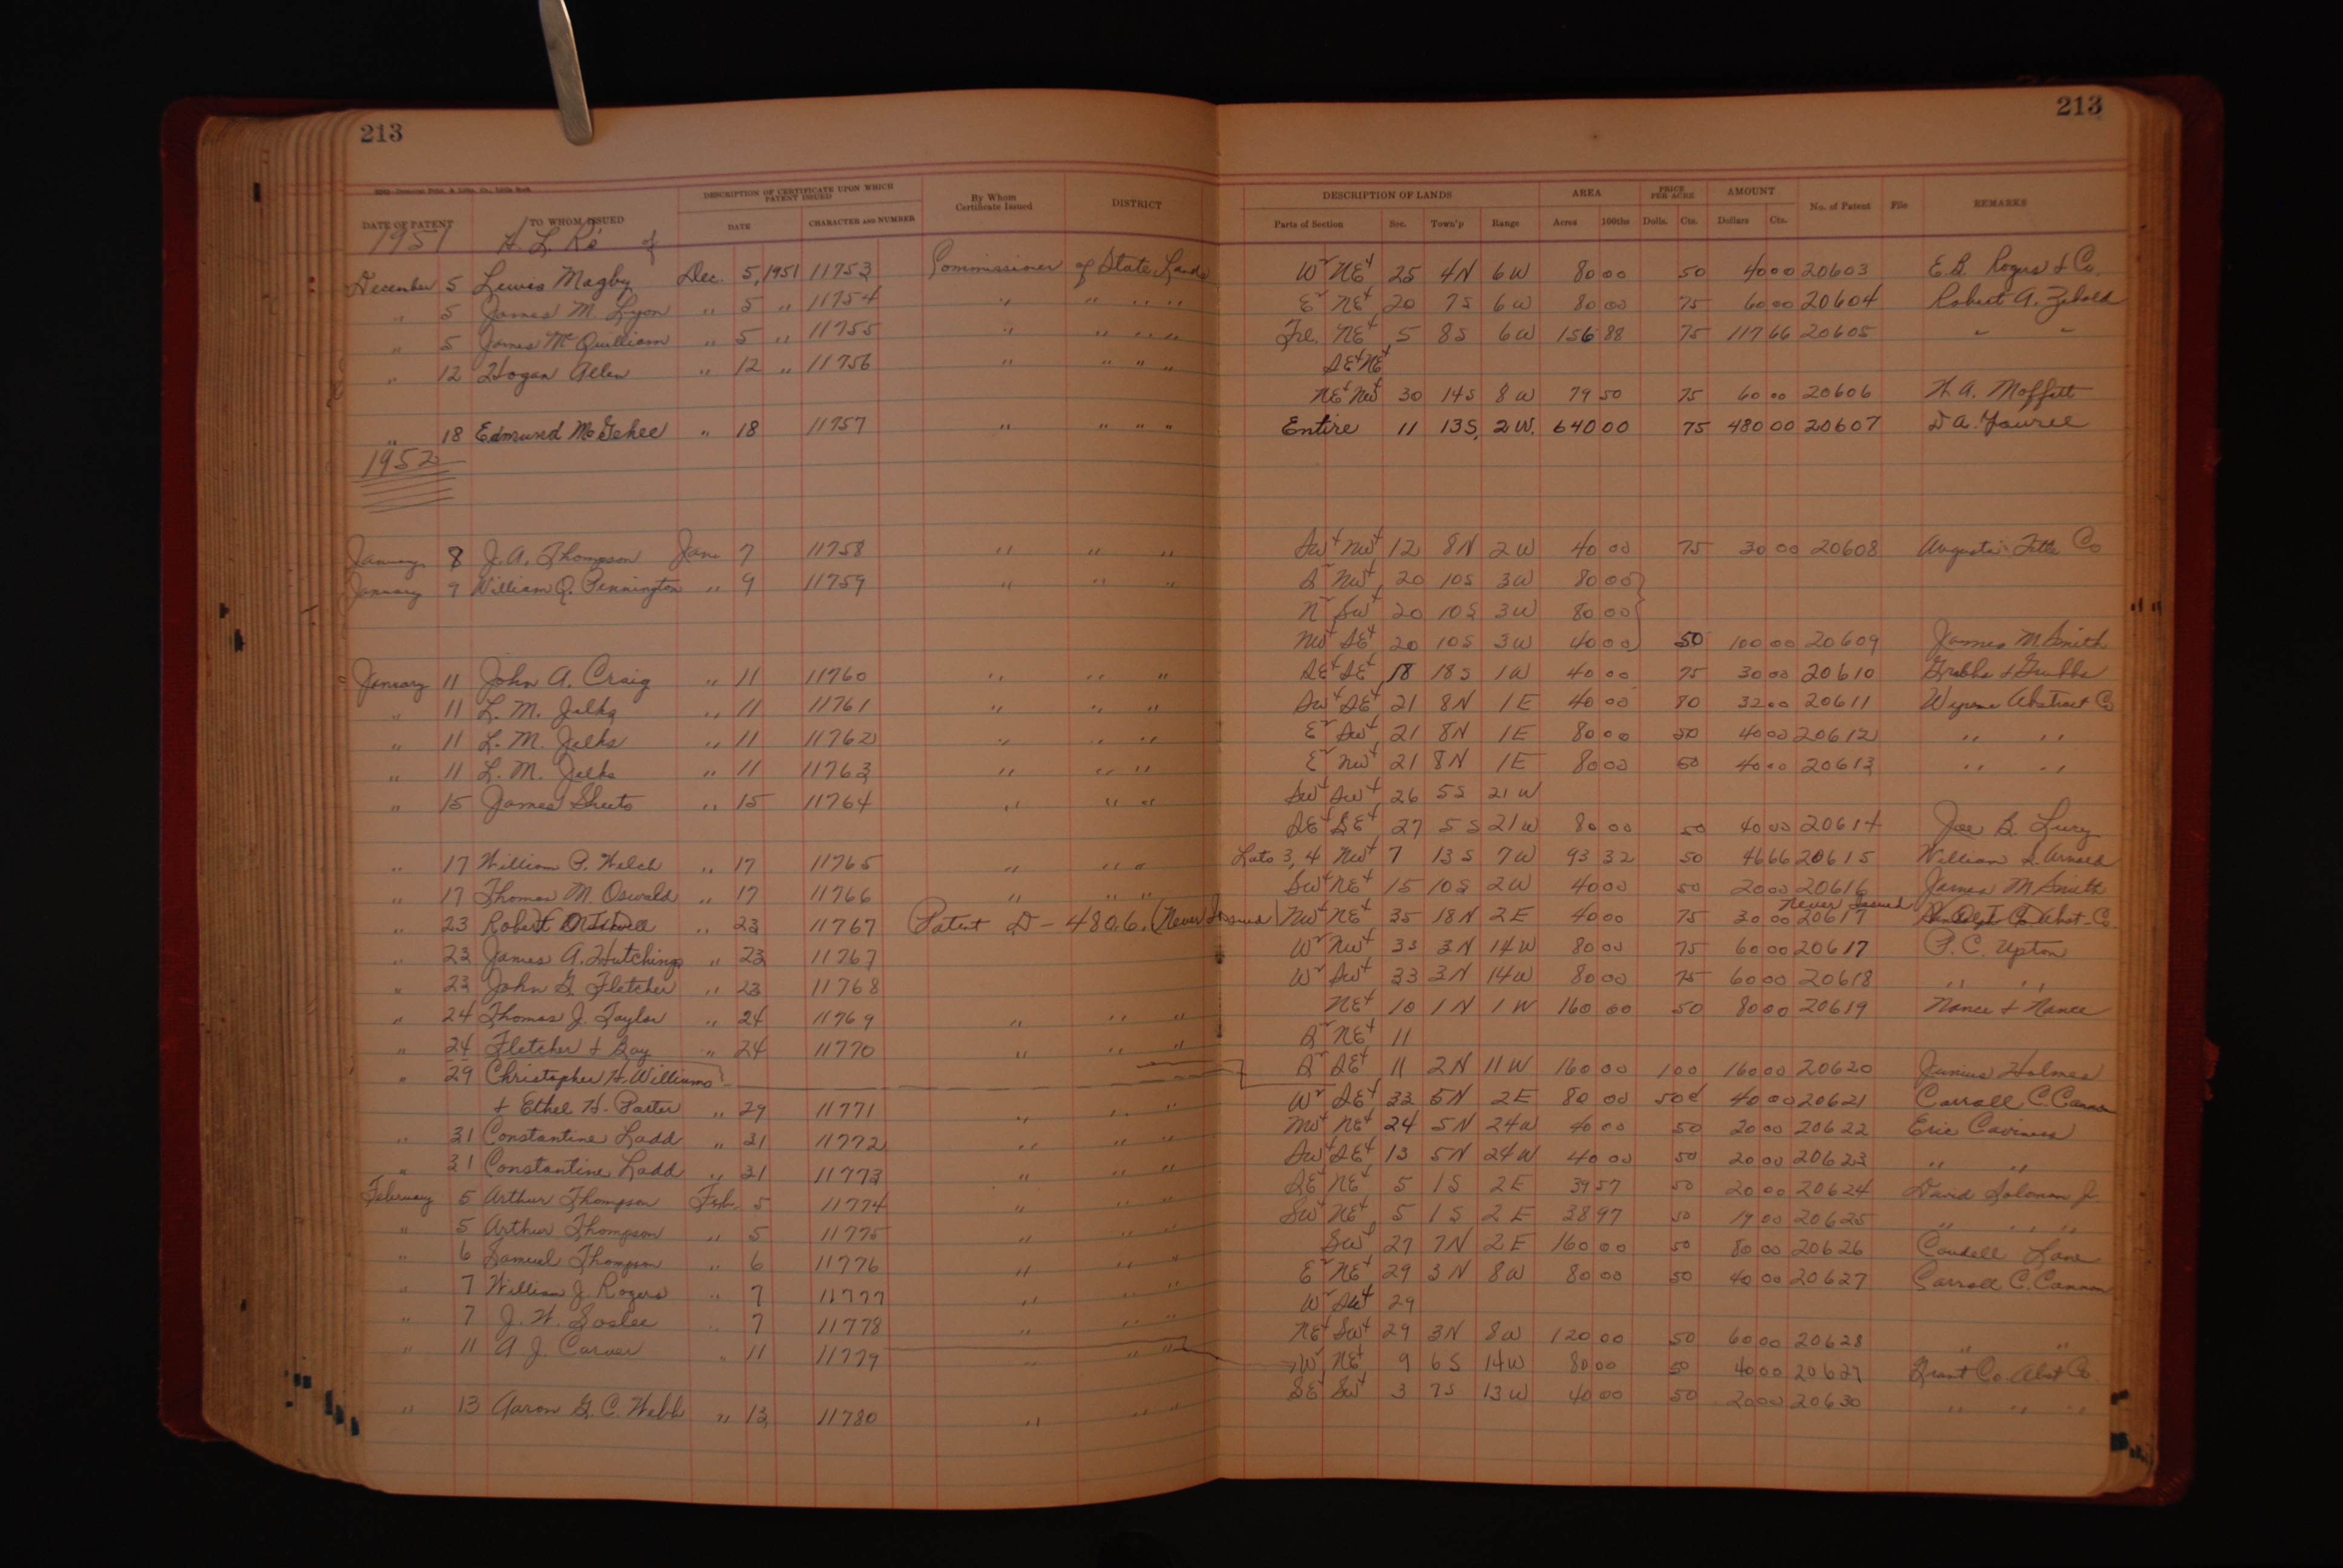 213 213
DESCRIPTION OF CERTIFICATE UPON WHICH PATENT ISSUED By Whom Certificate Issued DISTRICT DESCRIPTION OF LANDS AREA PRICE PER ACRE AMOUNT No. of Patent File REMARKS
DATE OF PATENT TO WHOM ISSUED DATE CHARACTER AND NUMBER Parts of Section Sec. Town'p Range Acres 100ths Dolls. Cts. Dollars Cts.
1951
December 5 Lewis Magby Dec. 5, 1951 11753 Commissioner of State Lands W2 NE4 25 4N 6W 80 00 50 40 00 20603 E.B. Rogers & Co.
" 5 James M. Lyon " 5 " 11754 " " " " E2 NE4 20 7S 6W 80 00 75 60 00 20604 Robert A. Zebold
" 5 James McQuilliam " 5 " 11755 " " " " Frl. NE4 5 8S 6W 156 88 75 117 66 20605 " "
" 12 Hogan Allen " 12 " 11756 " " " " SE4 NE4
NE4 NW4 30 14S 8W 79 50 75 60 00 20606 H.A. Moffatt
" 18 Edmund McGehee " 18 11757 " " " " Entire 11 13S. 2W. 640 00 75 480 00 20607
1952
January 8 J.A. Thompson Jan. 7 11758 " " " SW4 NW4 12 8N 2W 40 00 75 30 00 20608 Augusta Title Co
January 9 William Q. Pennington " 9 11759 " " " S2 NW4 20 10S 3W 80 00
N2 SW4 20 10S 3W 80 00
NW4 SE4 20 10S 3W 40 00 50 100 00 20609 James M. Smith
January 11 John A. Craig " 11 11760 " " " SE4 SE4 18 18S 1W 40 00 75 30 00 20610 Grubbs & Grubbs
" 11 L.M. Jelks " 11 11761 " " " SW4 SE4 21 8N 1E 40 00 80 32 00 20611 Abstract Co
" 11 L.M. Jelks " 11 11762 " " " E2 SW4 21 8N 1E 80 00 50 40 00 20612 " "
" 11 L.M. Jelks " 11 11763 " " " E2 NW4 21 8N 1E 80 00 50 40 00 20613 " "
" 15 James Sheets " 15 11764 " " " SW4 SW4 26 5S 21W
SE4 SE4 27 5S 21W 80 00 50 40 00 20614 Joe B.
" 17 William P. Welch " 17 11765 " " " Lots 3, 4 NW4 7 13S 7W 93 32 50 46 66 20615 William S. Arnold
" 17 Thomas M. Oswald " 17 11766 " " " SW4 NE4 15 10S 2W 40 00 50 20 00 20616 James M Smith
Never Issued
" 23 Robert " 23 11767 Patent D-4806. (Never Issued) NW4 NE4 35 18N 2E 40 00 75 30 00 20617 Randolph Co Abst. Co.
" 23 James A. Hutchings " 23 11767 W2 NW4 33 3N 14W 80 00 75 60 00 20617 P.C. Upton
" 23 John G. Fletcher " 23 11768 W2 SW4 33 3N 14W 80 00 75 60 00 20618 " "
" 24 Thomas J. Taylor " 24 11769 " " " NE4 10 1N 1W 160 00 50 80 00 20619 Nance & Nance
" 24 Fletcher & Roy " 24 11770 " " " S2 NE4 11
S2 SE4 11 2N 11W 160 00 1 00 160 00 20620 Junius Holmes
" 29 Christopher H. Williams
& Ethel H. Porter " 29 11771 " " " W2 SE4 33 5N 2E 80 00 50¢ 40 00 20621 Carroll C. Cannon
" 31 Constantine Ladd " 31 11772 " " " NW4 NE4 24 5N 24W 40 00 50 20 00 20622 Eric Caviness
" 31 Constantine Ladd " 31 11773 " " " SW4 SE4 13 5N 24W 40 00 50 20 00 20623 " "
February 5 Arthur Thompson Feb. 5 11774 " " " SE4 NE4 5 1S 2E 39 57 50 20 00 20624 David Solomon Jr.
" 5 Arthur Thompson " 5 11775 " " " SW4 NE4 5 1S 2E 38 97 50 19 00 20625 " " "
" 6 Samuel Thompson " 6 11776 " " " SW4 27 7N 2E 160 00 50 80 00 20626 Caudell Lane
" 7 William J. Rogers " 7 11777 " " " E2 NE4 29 3N 8W 80 00 50 40 00 20627 Carroll C. Cannon
" 7 J.W. Soslee " 7 11778 " " " W2 SW4 29
NE4 SW4 29 3N 8W 120 00 50 60 00 20628 " "
" 11 A.J. Carver " 11 11779 " " " W2 NE4 9 6S 14W 80 00 50 40 00 20629 Grant Co. Abst Co.
" 13 Aaron G.C. Webb " 13 11780 " " " SE4 SW4 3 7S 13W 40 00 50 20 00 20630 " " "